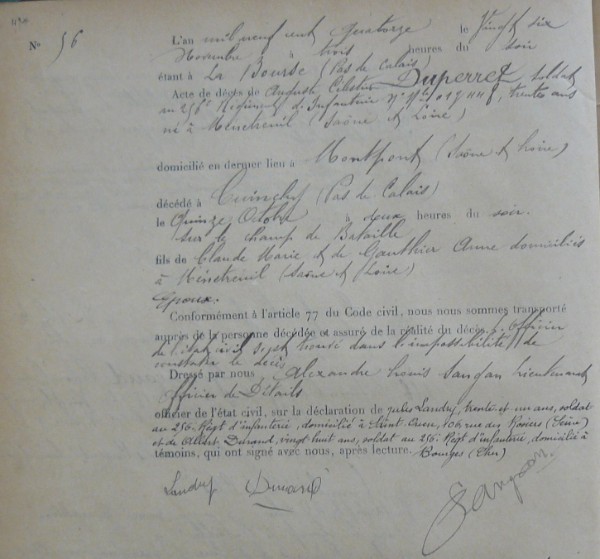 N° 56
L'an mil neuf cent quatorze le Vingt six
Novembre à trois heures du soir
étant à La Bourse (Pas de Calais)
Acte de décès de Auguste Célestin Duperret, soldat
au 256e Régiment d'Infanterie N° Mle 017448, trente ans
né à Ménetreuil (Saône et Loire)
domicilié en dernier lieu à Montpont (Saône et Loire)
décédé à Cuinchy (Pas de Calais)
le Quinze Octobre à deux heures du soir
sur le champ de Bataille
fils de Claude Marie et de Gauthier Anne domiciliés
à Ménetreuil (Saône et Loire)
époux.
Conformément à l'article 77 du Code civil, nous nous sommes transporté
auprès de la personne décédée et assuré de la réalité du décès. Officier
de l'état civil s'est trouvé dans l'impossibilité de
constater le décès
Dressé par nous Alexandre Louis Sangan Lieutenant
officier de Détails
officier de l'état civil, sur la déclaration de Jules Landry, trente et un ans, soldat
au 256e Régt d'infanterie, domicilié à Saint Ouen, 106 rue des Rosiers (Seine)
et de Albert Durand, vingt huit ans, soldat au 256e Régt d'infanterie, domicilié à
témoins, qui ont signé avec nous, après lecture. Bourges (Cher)
Landry Durand Sangan